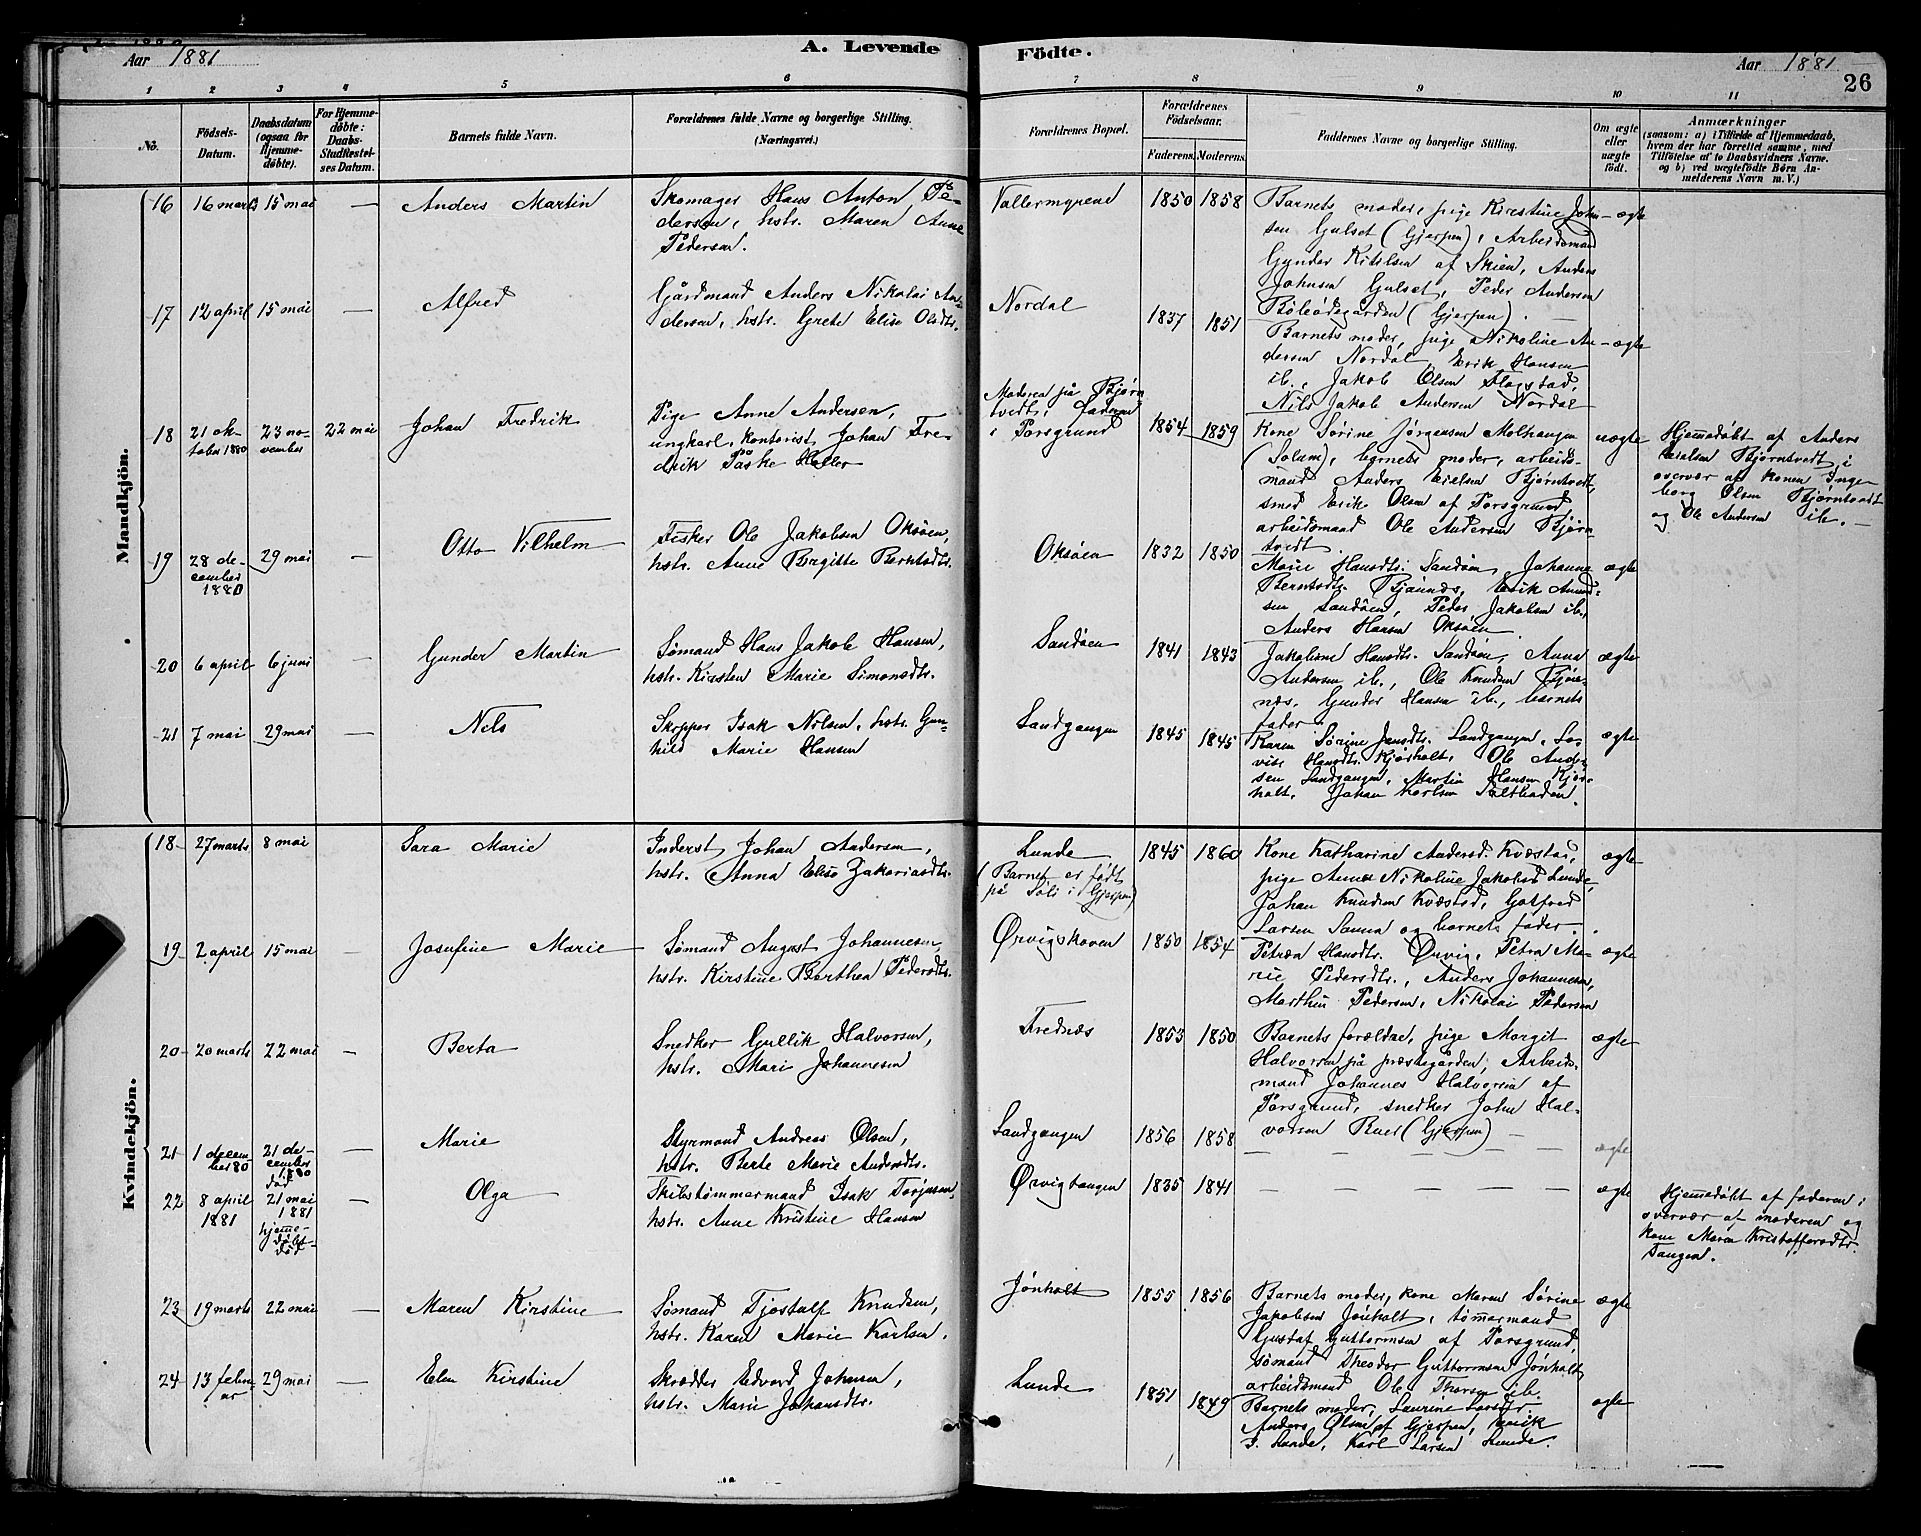 Aar 1881
A. Levende
Födte.
Aar 1881
26
1 2 3 4 5 6 7 8 9 10 11
No.
Födsels-Datum.
Daabsdatum (ogsaa for Hjemme-döbte).
For Hjemme-döbte: Daabs-Stadfæstelses Datum.
Barnets fulde Navn.
Forældrenes fulde Navne og borgerlige Stilling.
(Næringsvei.)
Forældrenes Bopæl.
Forældrenes Födselsaar.
Faderens. Moderens.
Faddernes Navne og borgerlige Stilling.
Om ægte eller uægte födt.
Anmærkninger
(saasom: a) i Tilfælde af Hjemmedaab, hvem der har forrettet samme, med Tilföielse af to Daabsvidners Navne. og b) ved uægtefödte Börn Anmelderens Navn m. V.)
Mandkjön.
16 16 marts 15 mai — Anders Martin
Skomager Hans Anton Pe-
dersen, hstr. Maren Anne
Pedersen.
Vallermyrene 1850 1858
Barnets moder, pige Kirstine John-
sen Gulset (Gjerpen), Arbeidsmand
Gunder Kittilsen af Skien, Anders
Johnsen Gulset, Peder Andersen
Böleödegården (Gjerpen).
ægte
17 12 april 15 mai — Alfred
Gårdmand Anders Nikolai An-
dersen, hstr. Grete Elise Olsdtr.
Nordal 1837 1851
Barnets moder, pige Nikoline An-
dersen Nordal, Erik Hansen
ib., Jakob Olsen Flagstad,
Nils Jakob Andersen Nordal
ægte
18 21 oktober 1880 23 november 22 mai Johan Fredrik
Pige Anne Andersen,
ungkarl, kontorist Johan Fre-
drik Paske Høller
Moderen på Bjørn-
tvedt, faderen
i Porsgrund 1854 1859
Kone Sørine Jørgensen Molhaugen
(Solum), barnets moder, arbeids-
mand Anders Eielsen Bjørntvedt,
smed Erik Olsen af Porsgrund
arbeidsmand Ole Andersen Bjørn-
tvedt
uægte
Hjemmedøbt af Anders
Eielsen Bjørntvedt, i
overvær af konen Inge-
borg Olsen Bjørntvedt
og Ole Andersen ib. —
19 28 december 1880 29 mai — Otto Vilhelm
Fisker Ole Jakobsen Oksøen,
hstr. Anne Birgitte Berntsdtr.
Oksøen 1832 1850
Marie Hansdtr. Sandøen, Johanne
Berntsdtr. Bjønnes, Erik Amund-
sen Sandøen, Peder Jakobsen ib.,
Anders Hansen Oksøen
ægte
20 6 april 6 juni — Gunder Martin
Sømand Hans Jakob Hansen,
hstr. Kirsten Marie Simonsdtr.
Sandøen 1841 1843
Jakobine Hansdtr. Sandøen, Anna
Andersen ib., Ole Knudsen Bjøn-
næs, Gunder Hansen ib., barnets
fader.
ægte
21 7 mai 29 mai — Nils
Skipper Isak Nilsen, hstr. Gun-
hild Marie Hansen
Landgangen 1845 1845
Karen Sørine Jensdtr. Landgangen, Lo-
vise Hansdtr. Kjørholt, Ole Ander-
sen Landgangen, Martin Hansen Kjør-
holt, Johan Karlsen Saltboden.
ægte
Kvindekjön.
18 27 marts 8 mai Sara Marie
Inderst Johan Andersen,
hstr. Anna Elise Zakariasdtr.
Lunde
(Barnet er født
på Søli i Gjerpen) 1845 1860
Kone Katharine Andersd. Kvæstad,
pige Anne Nikoline Jakobsd. Lunde,
Johan Knudsen Kvæstad, Gotfred
Larsen Sanna og barnets fader.
ægte
19 2 april 15 mai — Josefine Marie
Sømand August Johannesen
hstr. Kirstine Berthea Pedersdtr.
Ørvigskoven 1850 1854
Petrea Hansdtr. Ørvig, Petra Ma-
rie Pedersdtr., Anders Johannesen,
Marthin Pedersen, Nikolai Pedersen
ægte
20 20 marts 22 mai — Berta
Snedker Gullik Halvorsen,
hstr. Mari Johannesen
Frednæs 1853 1850
Barnets forældre, pige Margit
Halvorsen på præstegården, Arbeids-
mand Johannes Halvorsen af
Porsgrund, snedker John Hal-
vorsen Bues (Gjerpen) —
ægte
21 1 december 80 21 december 1880 død — Marie
Styrmand Andreas Olsen,
hstr. Berte Marie Andersdtr.
Landgangen 1856 1858
— — — — —
ægte
22 8 april 1881 21 mai 1881 hjemme-døbt død — Olga
Skibstømmermand Isak Torjusen,
hstr. Anne Kristine Hansen
Ørvigtangen 1835 1841
— — — — —
ægte
Hjemmedøbt af faderen i
overvær af moderen og
kone Maren Kristoffersdtr.
Tangen.
23 19 marts 22 mai — Maren Kirstine
Sømand Tjostolf Knudsen,
hstr. Karen Marie Karlsen.
Jønholt 1855 1856
Barnets moder, kone Maren Sørine
Jakobsen Jønholt, tømmermand
Gustaf Guttormsen af Porsgrund,
sømand Theodor Guttormsen Jønholt
arbeidsmand Ole Thorsen ib.
ægte
24 13 februar 29 mai — Elen Kirstine
Skrædder Edvard Johnsen,
hstr. Marie Johansdtr.
Lunde 1851 1849
Barnets moder, Laurine Larsdtr.
Anders Olsen af Gjerpen,
Lunde, Karl Larsen Lunde.
ægte